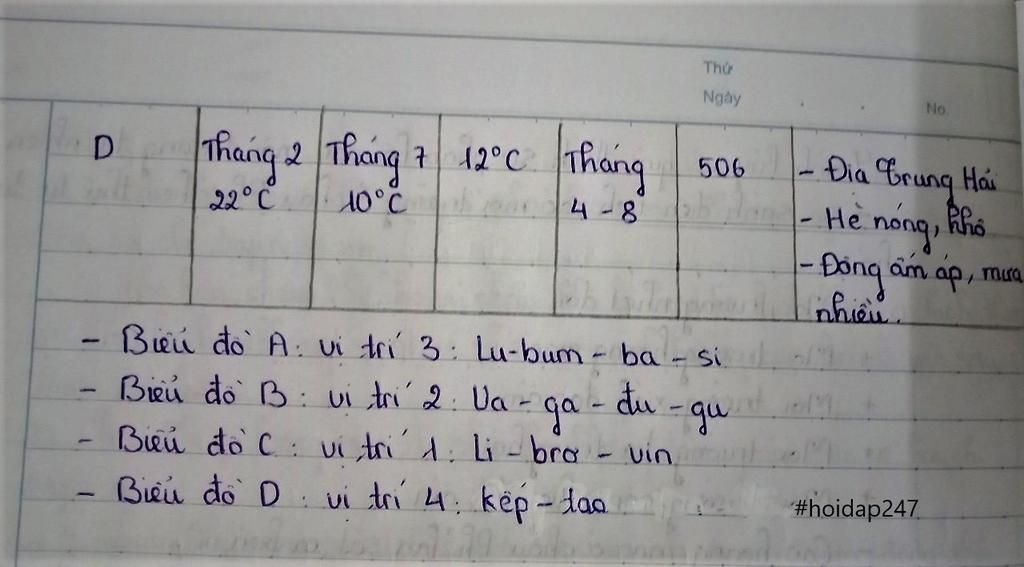 Thứ
Ngày
No.
D
Tháng 2
22°C
Tháng 7
10°C
12°C
Tháng
4 - 8
506
- Địa Trung Hải
- Hè nóng, khô
- Đông ấm áp, mưa
nhiều.
- Biểu đồ A: vị trí 3: Lu-bum-ba-si
- Biểu đồ B: vị trí 2: Ua-ga-đu-gu
- Biểu đồ C: vị trí 1: Li-brơ-vin
- Biểu đồ D: vị trí 4: kếp-tao
#hoidap247